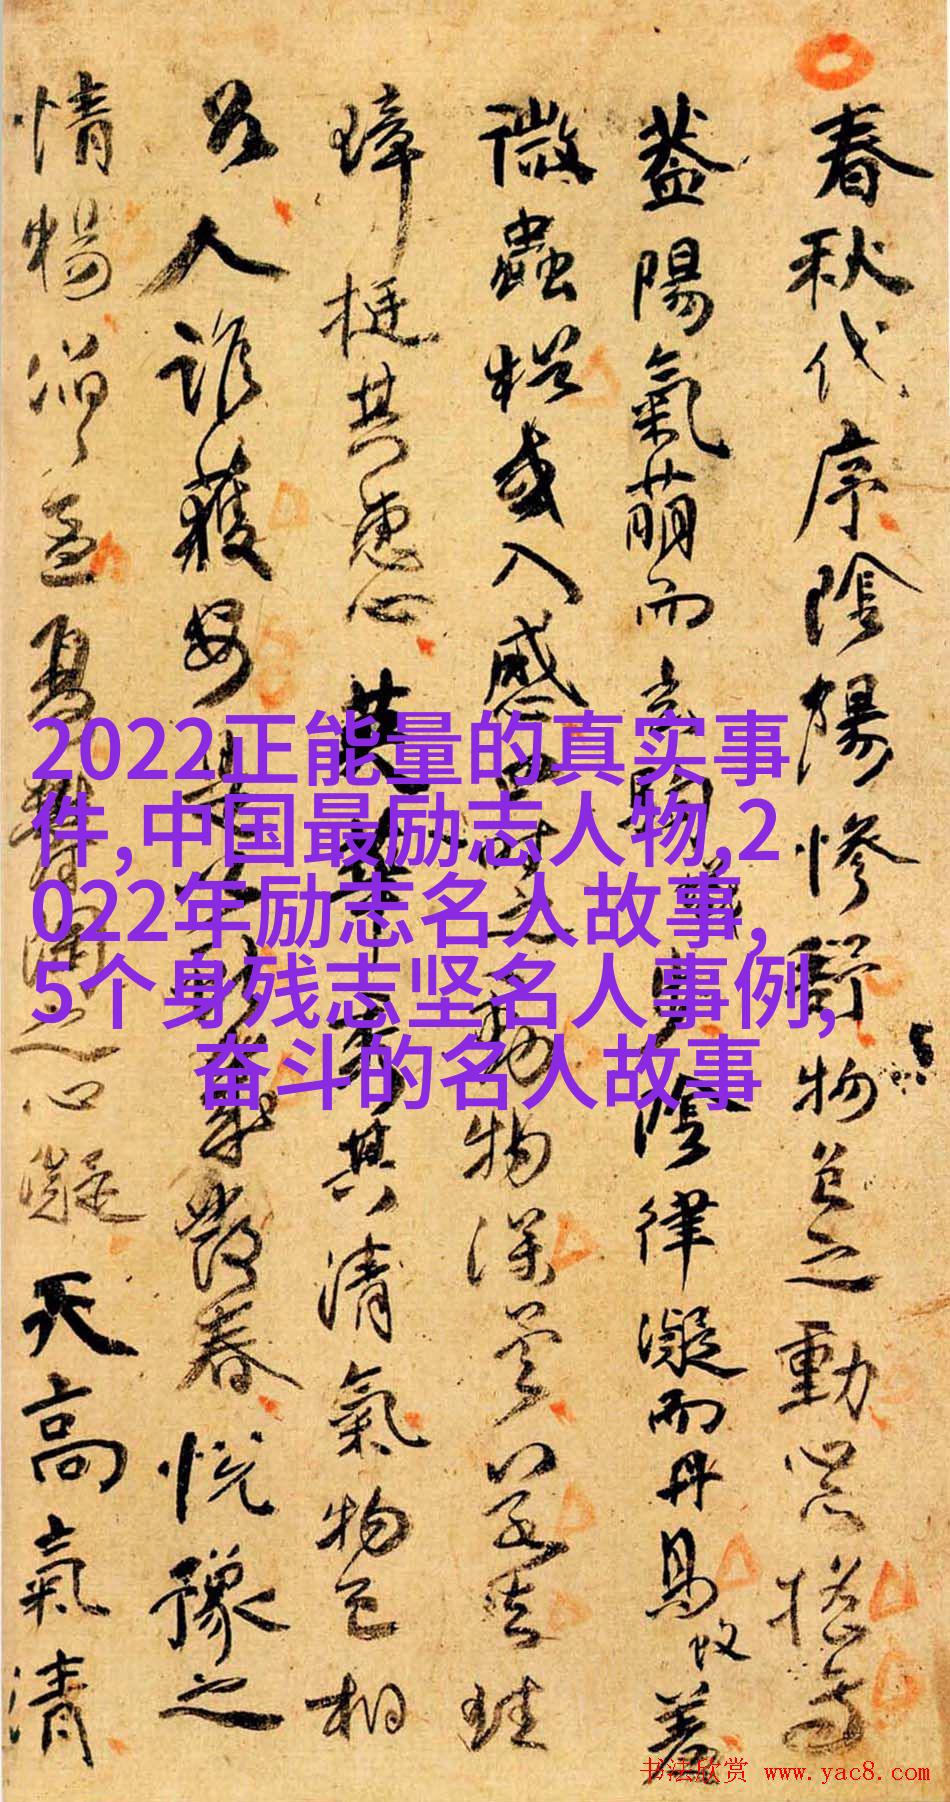 春秋代序陰陽慘舒物色之動心亦搖焉
蓋陽氣萌而玄駒步陰律凝而丹鳥羞
微蟲猶或入感四時之動物深矣若夫珪
璋挺其惠心英華秀其清氣物色相
召人誰獲安是以獻歲發春悅豫之
情暢滔滔孟夏鬱陶之心凝天高氣清
2022正能量的真实事
件,中国最励志人物,2
022年励志名人故事,
5个身残志坚名人事例,
奋斗的名人故事
书法欣赏 www.yac8.com